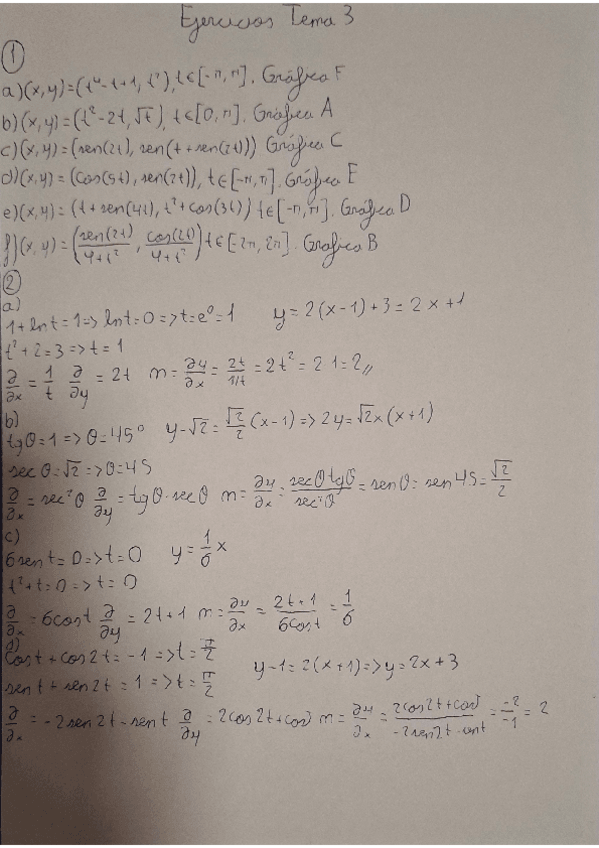 Ejercicios Tema 3
1
a) (x,y)=(t⁴-t+1, t²), t∈[-π, π]. Gráfica F
b) (x,y)=(t²-2t, √t), t∈[0, π]. Gráfica A
c) (x,y)=(sen(2t), sen(t+sen(2t))) Gráfica C
d) (x,y)=(cos(5t), sen(2t)), t∈[-π, π]. Gráfica E
e) (x,y)=(t+sen(4t), t²+cos(3t)) t∈[-π, π]. Gráfica D
f) (x,y)=(sen(2t)/4+t², cos(2t)/4+t²) t∈[-2π, 2π]. Gráfica B
2
a)
1+lnt=1=>lnt=0=>t=e⁰=1 y=2(x-1)+3=2x+1
t²+2=3=>t=1
∂/∂x=1/t ∂/∂y=2t m=∂y/∂x=2t/1/t=2t²=2·1=2,,
b)
tgθ=1=>θ=45° y-√2=√2/2(x-1)=>2y=√2x(x+1)
secθ=√2=>θ=45
∂/∂x=sec²θ ∂/∂y=tgθ·secθ m=∂y/∂x=secθtgθ/sec²θ=senθ=sen45=√2/2
c)
6sent=0=>t=0 y=1/6x
t²+t=0=>t=0
∂/∂x=6cost ∂/∂y=2t+1 m=∂y/∂x=2t+1/6cost=1/6
d)
cost+cos2t=-1=>t=π/2 y-1=2(x+1)=>y=2x+3
sent+sen2t=1=>t=π/2
∂/∂x=-2sen2t-sent ∂/∂y=2cos2t+cost m=∂y/∂x=2cos2t+cost/-2sen2t-sent=-2/-1=2